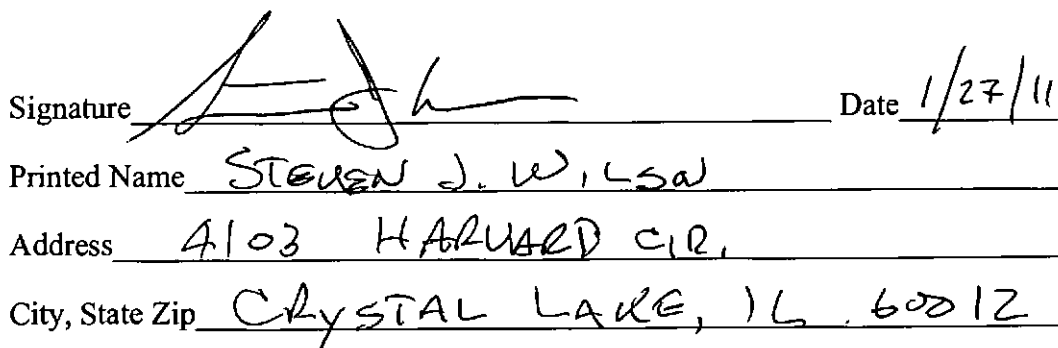 Signature Date 1/27/11
Printed Name STEVEN J. WILSON
Address 4103 HARVARD CIR.
City, State Zip CRYSTAL LAKE, IL. 60012